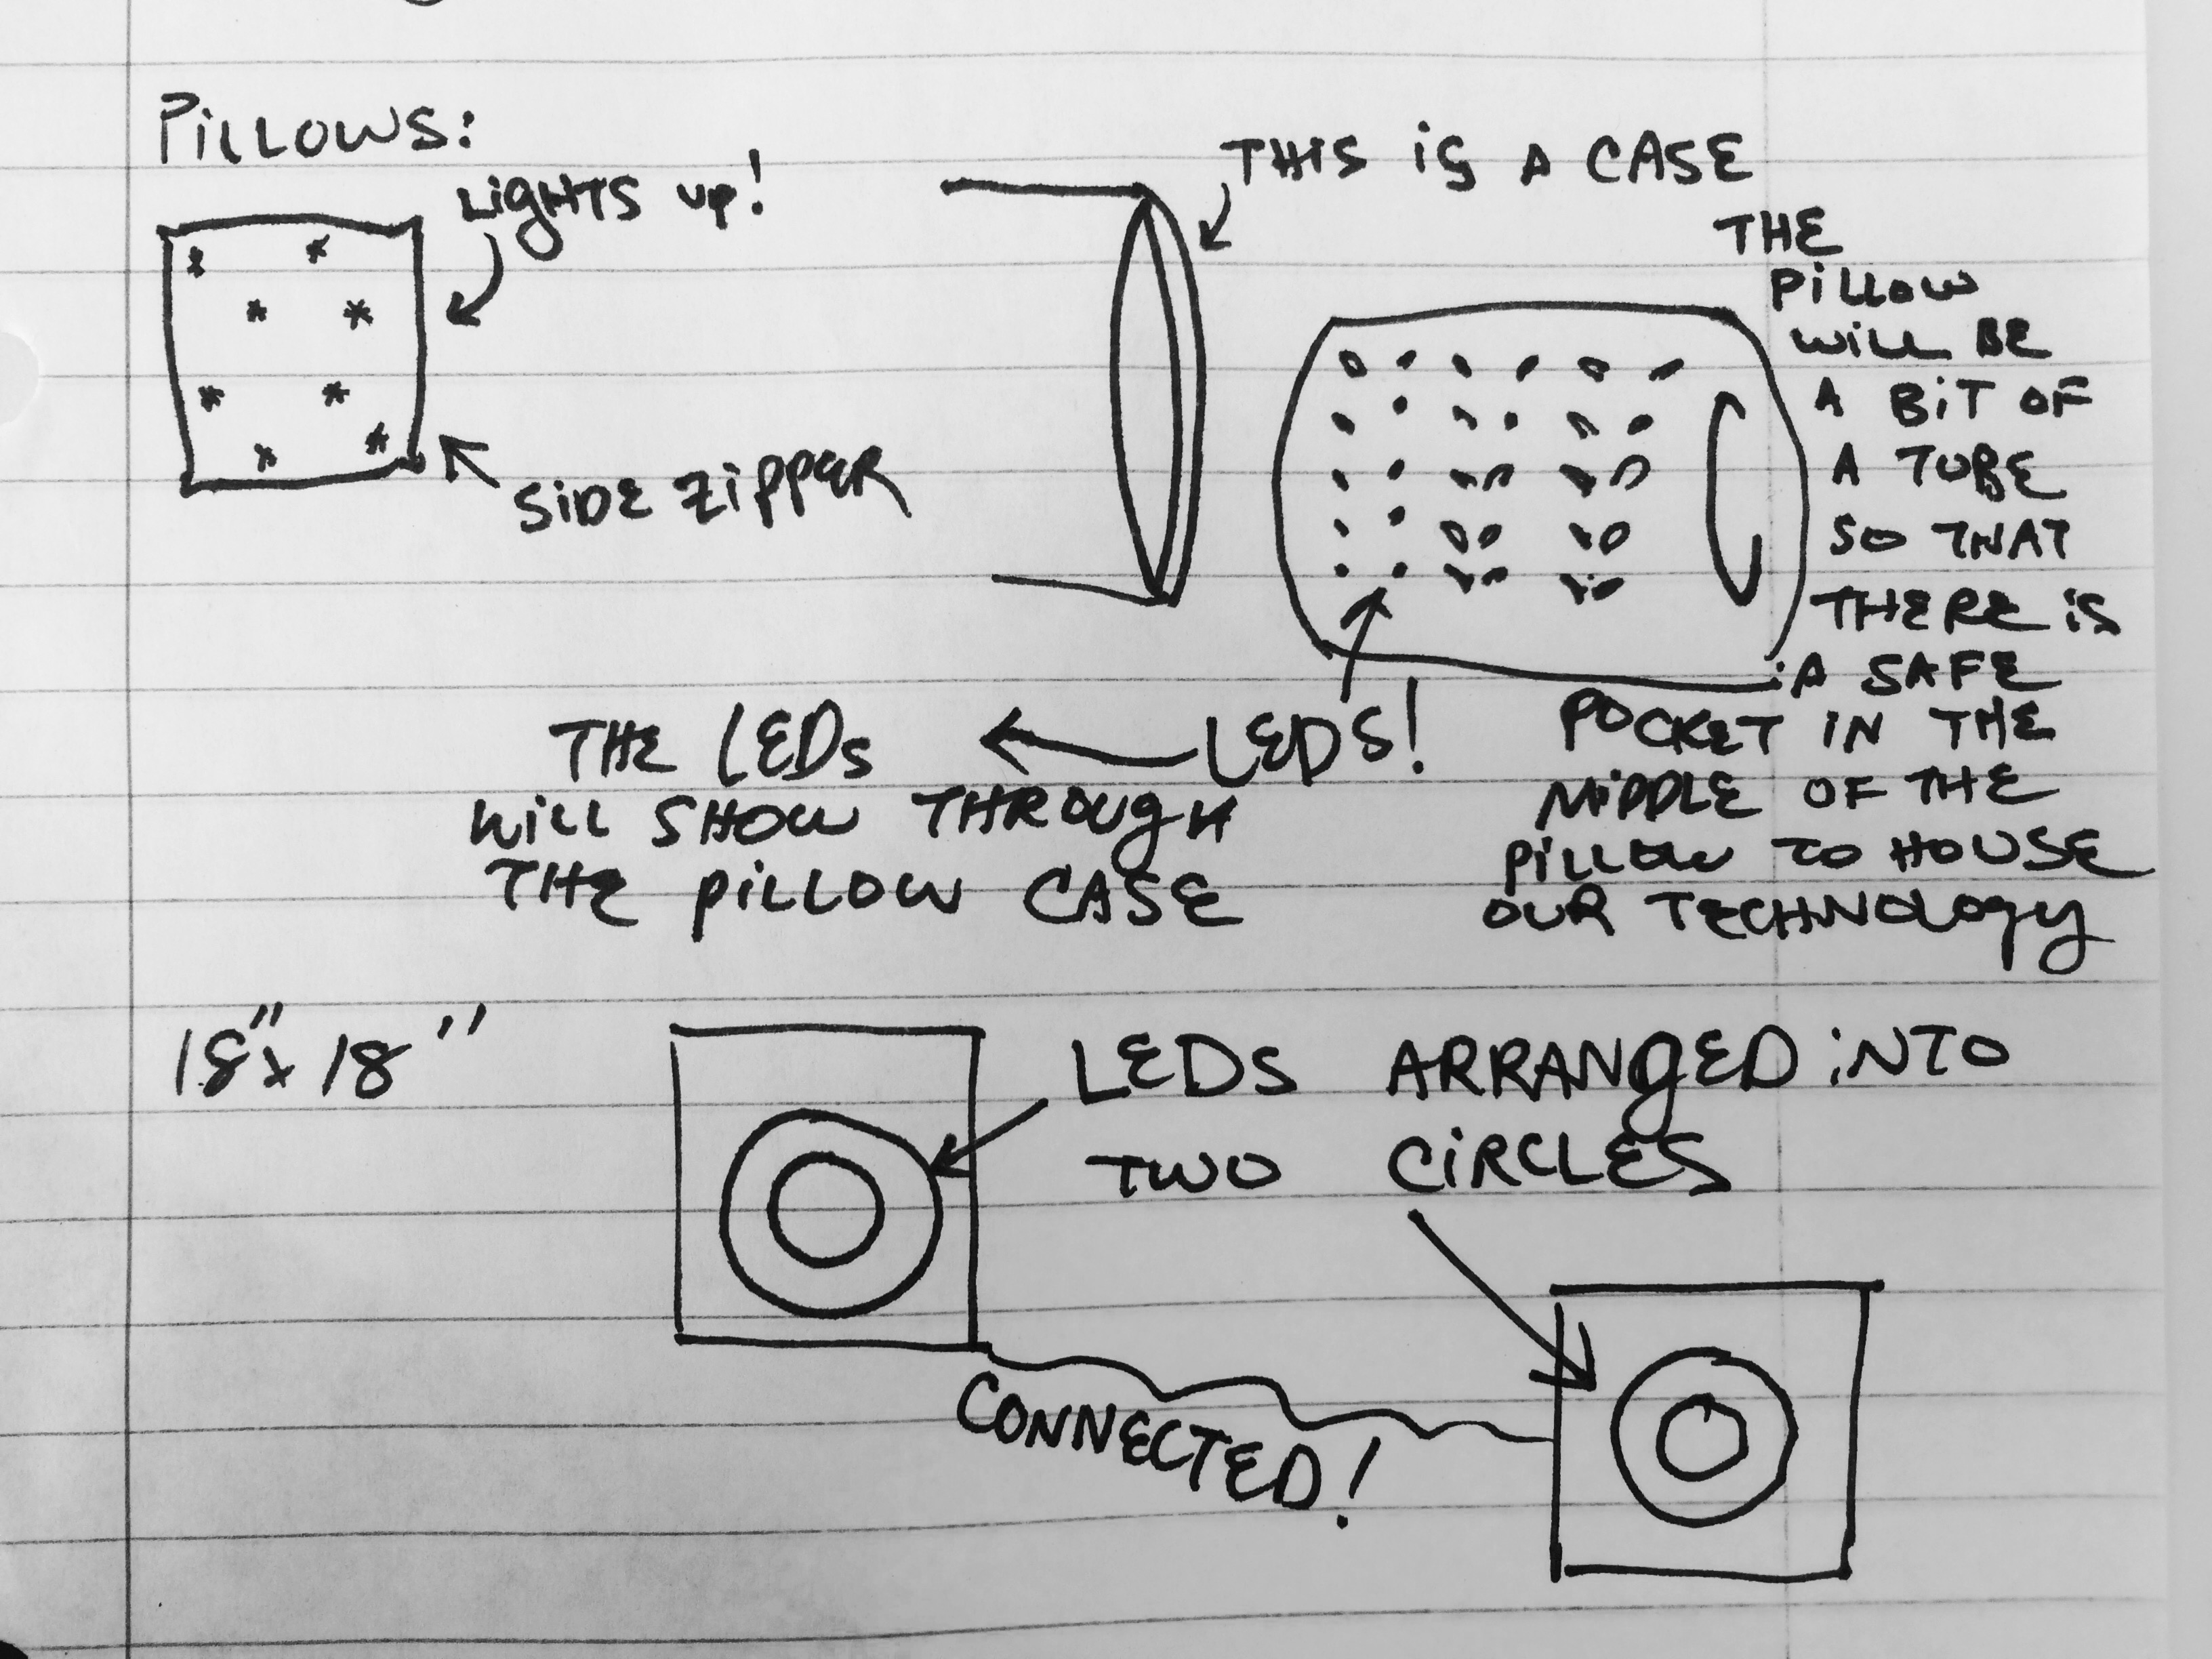 PiLLOWS:
LiGHTS up!
SiDE ZiPPER
THIS iS A CASE
THE
PiLLOW
WiLL BE
A BiT OF
A TUBE
SO THAT
THERE iS
A SAFE
POCKET IN THE
MiDDLE OF THE
PiLLOW TO HOUSE
OUR TECHNOLOgy
LEDS!
THE LEDs
WiLL SHOW THROUgH
THE PiLLOW CASE
18" x 18"
LEDS ARRANgED iNTO
TWO CiRCLES
CONNECTED!